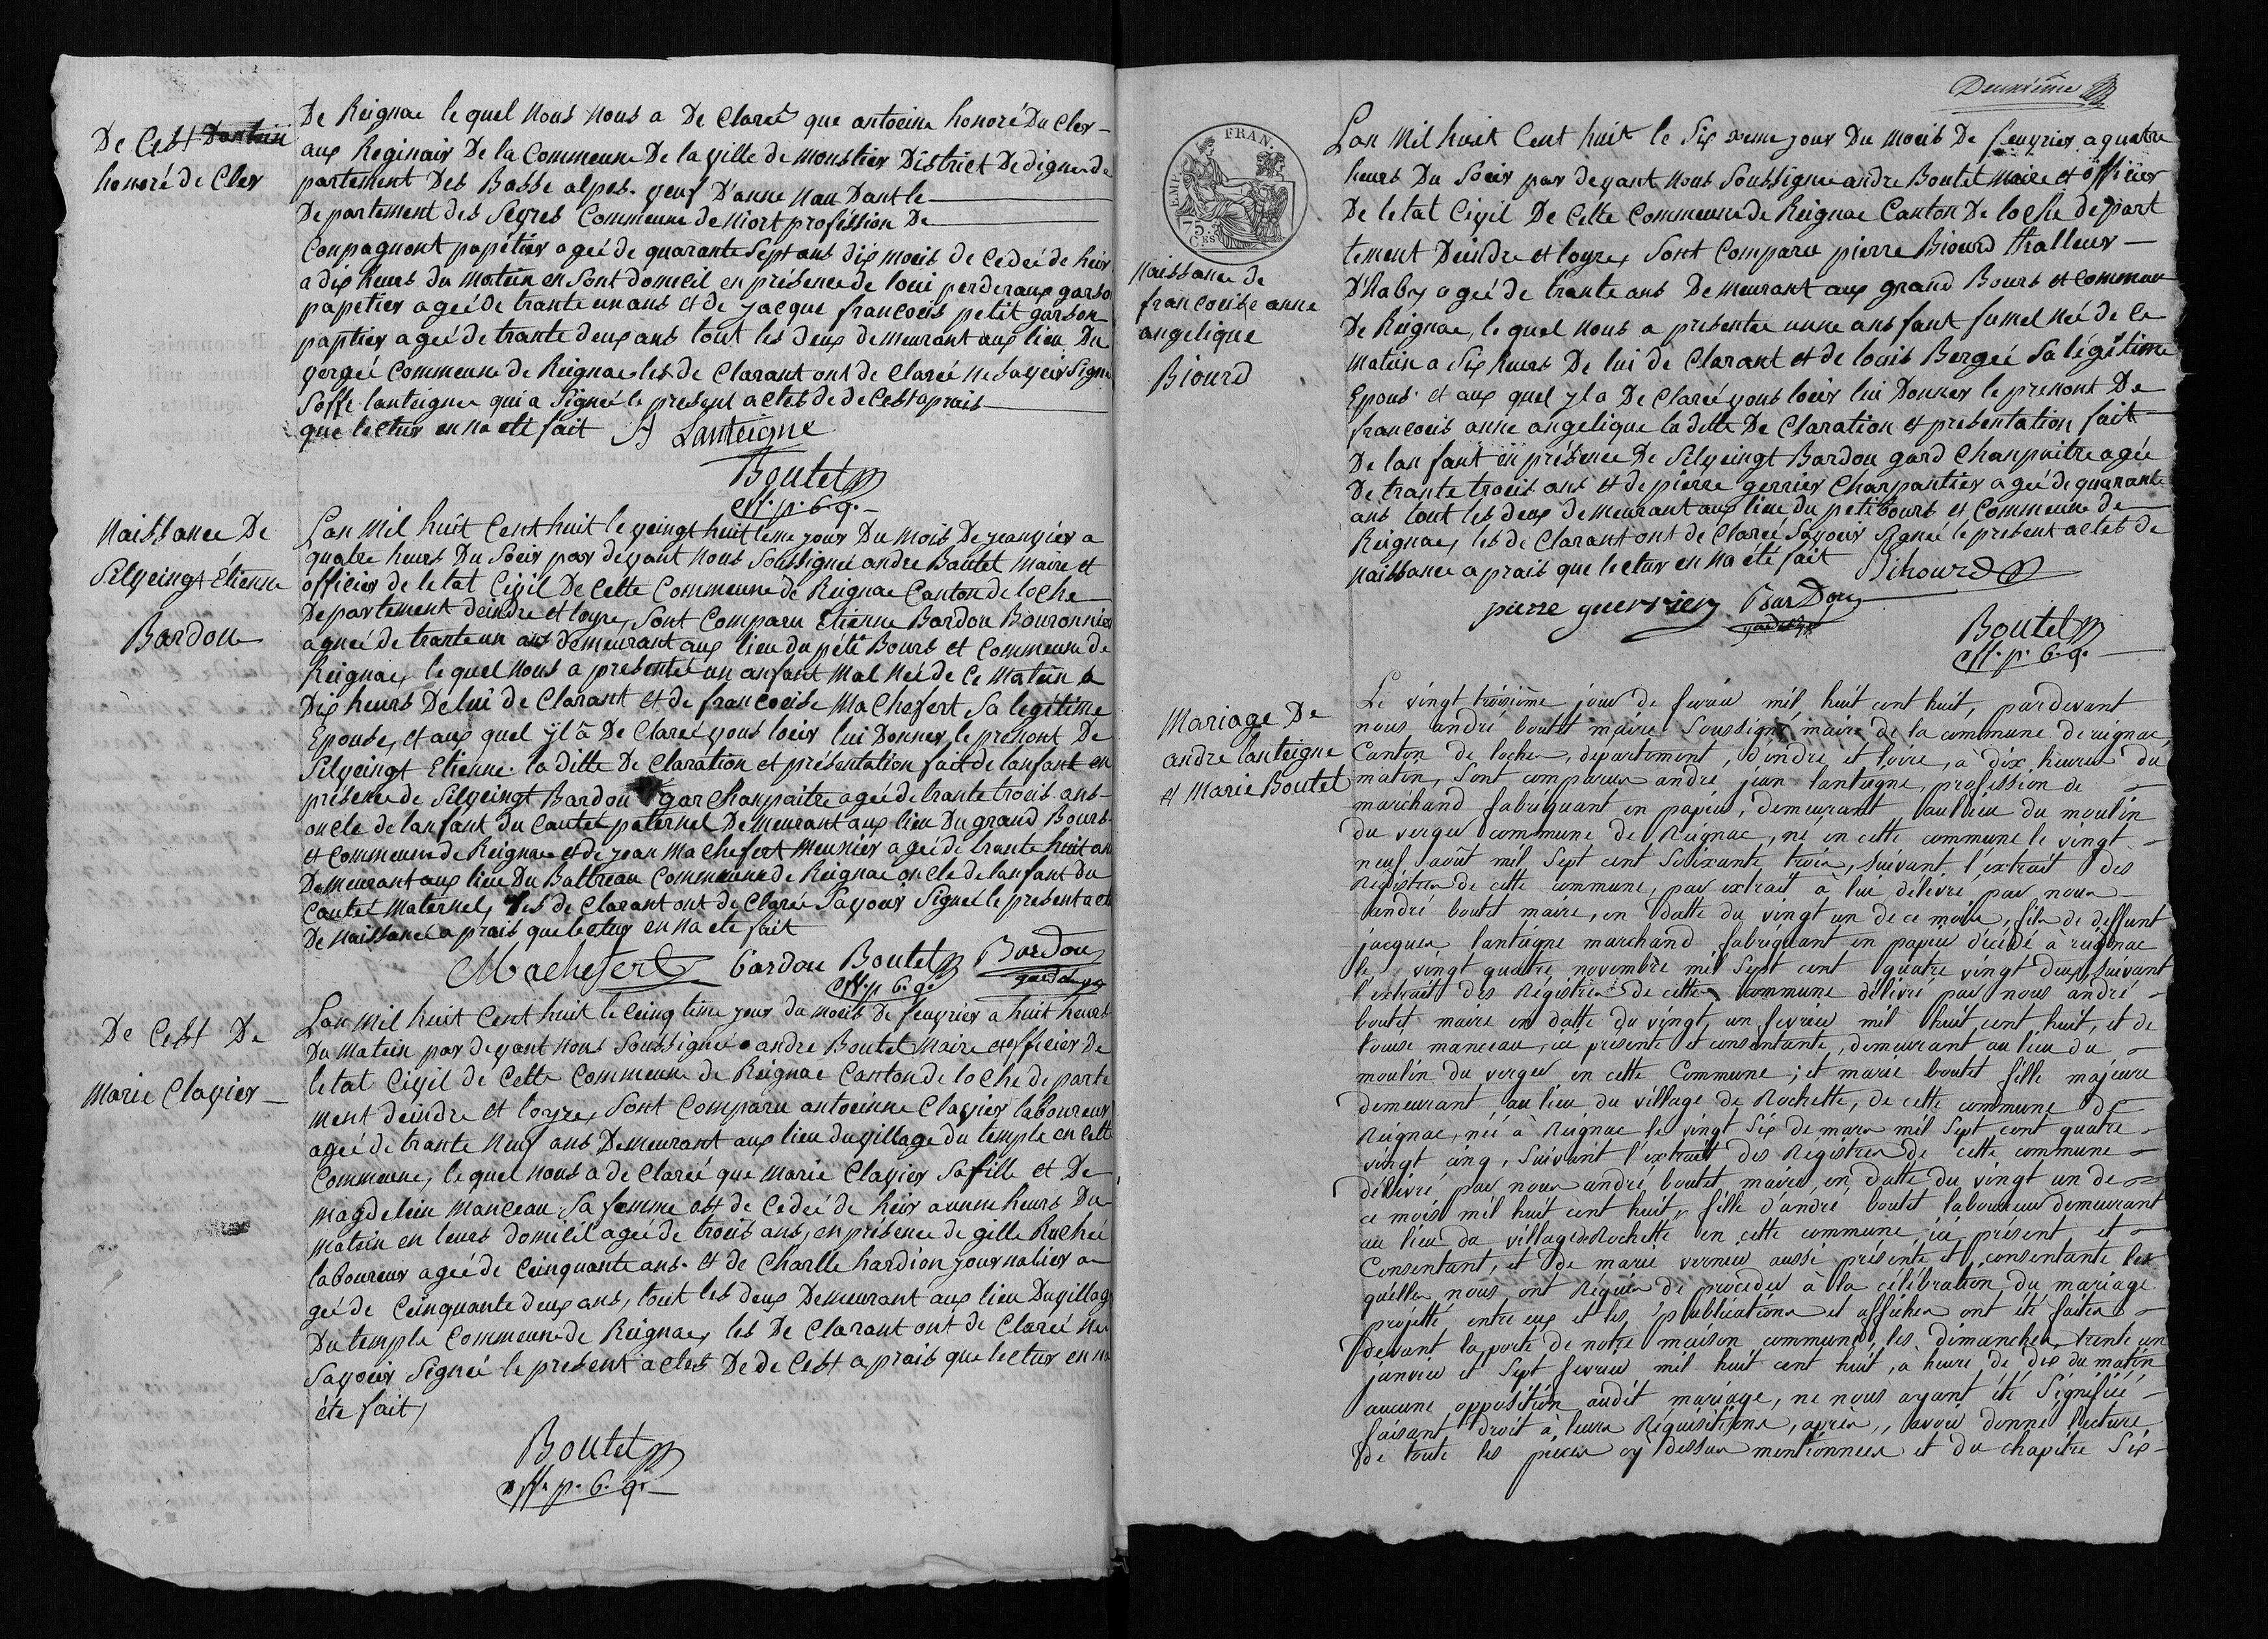 De Cest Dantoin
honoré de Cler
De Reignac le quel nous nous a De Claré que antoeine honoré Du Cler
aux Reginair De la Commeune De la ville de moustier District De digne de
partement Des Basse alpes. veuf D'anne Nau Dant le
Departement des Sevres Commeune de Niort profission De
Conpagnont papetier ageé de quarante Sept ans dix mois de Cedeé de hier
a dix heurs du matin en Sont domicil en présence de loui perderaux garson
papetier ageé De trante un ans et de jacque francois petit garson
paptier ageé de trante deux ans tout les deux demeurant aux lieu Du
vergeé Commeune de Reignac les de Clarant ont de Clareé ne Savoir Signé
Soffe lanteigne qui a Signeé le present actes de de Cest aprais
que lectur en na eté fait A Lanteigne
Boutet
off. p. b. g.
Naissance De
Silveingt Étienne
Bardou
Lan Mil huit Cent huit le veingt huit ieme jour Du mois De janvier a
quatre heurs Du Soeir par devant nous Soussigneé andre Boutet maire et
officier de letat Civil De Cette Commeune de Reignac Canton de loche
Departement deindre et loyre, Sont Comparu Étienne Bardou Bouronnier
agneé de trante un ans demeurant aux lieu du péti Bourt et Commeune de
Reignac, le quel nous a presenteé un anfant mal Neé de Ce Matin a
Dix heurs De lui de Clarant et de francoeise Machefert Sa legitime
Epouse, et aux quel yl à De Clareé vous loeir lui Donner le prenont De
Silveingt Etienne. la ditte De Claration et présentation fait de lanfant en
présence de Silveingt Bardou gar Chanpaitre ageé de trante troeis ans
oncle de lanfant du Coutet paternel Demeurant aux lieu Du grand Bourt
et Commeune de Reignac et de jean Machefert Meunier ageé de trante huit an
Demeurant aux lieu Du Battreau Commeune de Reignac oncle de lanfant du
Coutet Maternel, les de Clarant ont de Clareé Savoir Signeé le present acte
De Naissance a prais que lectur en na ete fait
Machefert bardou Boutet Bardou
off. p b. g. garde
De Cest De
Marie Clavier
Lan Mil huit Cent huit le Ceinq tieme jour du moeis De feuvrier a huit heurs
Du Matein par devant nous Soussigneé andre Boutet Maire et officier De
letat Civil de Cette Commeune de Reignac Canton de loche de parte
ment deindre et loyre, Sont Comparu antoeinne Clavier laboureur
ageé de trante neuf ans Demeurant aux lieu du village du temple en Cette
Commeune, le quel nous a de Clareé que Marie Clavier Sa fille et De
magdelein Manceau Sa femme est de Cedeé de hier a unne heurs Du
Matein en leurs domicil ageé de troeis ans, en présence de gille Rocheé
laboureur ageé de Ceinquante ans. et de Charlle hardion journalier a
geé de Ceinquante deux ans, tout les deux Demeurant aux lieu Du village
Du temple Commeune de Reignac, les De Clarant ont de Clareé Ne
Savoeir Signeé le present actes De de Cest a prais que lectur en na
éte fait,
Boutet
off. p. b. g.
Deuxième
EMP. FRAN.
75. CES
Naissance de
francoeise anne
angelique
Biourd
Lan Mil huit Cent huit le Six ieme jour Du moeis De feuvrier a quatre
heurs Du Soeir par devant nous Soussigneé andre Boutet maire et officier
De letat Civil De Cette Commeune de Reignac Canton De loche depart
tement Deindre et loyre, Sont Comparu pierre Biourd thalleur
D'habis ageé de trante ans Demeurant aux grand Bourt et Commeun
De Reignac, le quel nous a presenteé unne anfant fumel Neé de Ce
Matin a Six heurs De lui de Clarant et de louis Bergeé Sa légitime
Epous et aux quel yl a De Clareé vous loeir lui Donner le prenont De
francoeis anne angelique la ditte De Claration et presentation fait
De lan fant en présence De Silveingt Bardou gard Chanpaitre ageé
De trante troeis ans et de pierre gerrier Charpantier ageé de quarante
ans tout les deux demeurant aux lieu du petibourt et Commeune de
Reignac, les de Clarant ont de Clareé Savoeir Signeé le présent actes de
naissance a prais que lectur en na été fait Bihourd
pierre guerrier Bardou
garde
Boutet
off. p. b. g.
Mariage De
andre lanteigne
et Marie Boutet
Le vingt troisième jour de fevrier mil huit cent huit, pardevant
nous andré boutet maire Soussigné, maire de la commune de reignac,
Canton de loches, departement, d'indre et loire, à dix heures du
matin, Sont comparus andré jean lanteigne, profession de
marchand fabriquant en papier, demeurant au lieu du moulin
du verger commune de Reignac, né en cette commune le vingt
neuf août mil Sept cent Soixante trois, suivant l'extrait des
Registres de cette commune, par extrait à lui délivré par nous
andré boutet maire, en datte du vingt un de ce mois, fils de deffunt
jacques lanteigne marchand fabriquant en papier décédé à reignac
le vingt quatre novembre mil Sept cent quatre vingt deux, suivant
l'extrait des Régistres de cette commune délivré par nous andré
boutet maire en datte du vingt un fevrier mil huit cent huit, et de
louise manceau, ici présente et consentante, demeurant au lieu du
moulin du verger en cette Commune; et marie boutet fille majeure
demeurant au lieu du village de Rochette, de cette commune de
Reignac, née à Reignac le vingt Six de mars mil Sept cent quatre
vingt cinq, Suivant l'extrait des Régistres de cette commune
délivré par nous andré boutet maire, en datte du vingt un de
ce mois mil huit cent huit, fille d'andré boutet laboureur demeurant
au lieu du village de Rochette en cette commune, ici présent et
Consentant, et de marie verneu aussi présente et consentante les
quelles nous ont Réquis de procéder à la célébration du mariage
projetté entre eux et les publications et affiches ont été faites
devant la porte de notre maison commune, les dimanches trente un
janvier et Sept fevrier mil huit cent huit, à heure de dix du matin
aucune opposition audit mariage, ne nous ayant été Signifiée
faisant droit à leurs Réquisitions, après, avoir donné lecture
De toute les pièces cy dessus mentionnées et du chapitre Six